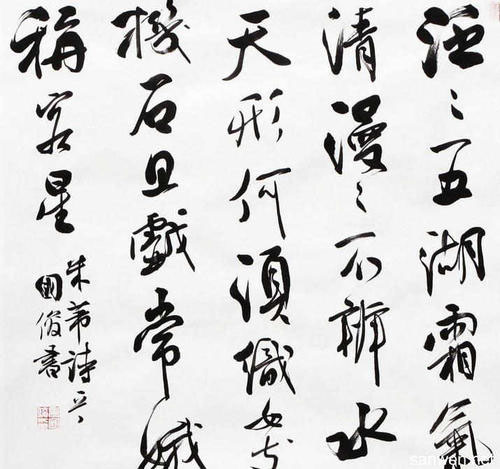 泛〻五湖霜氣
清漫〻不辨水
天形何須織女支
機石且戲常娥
稱客星
米芾詩
國俊書